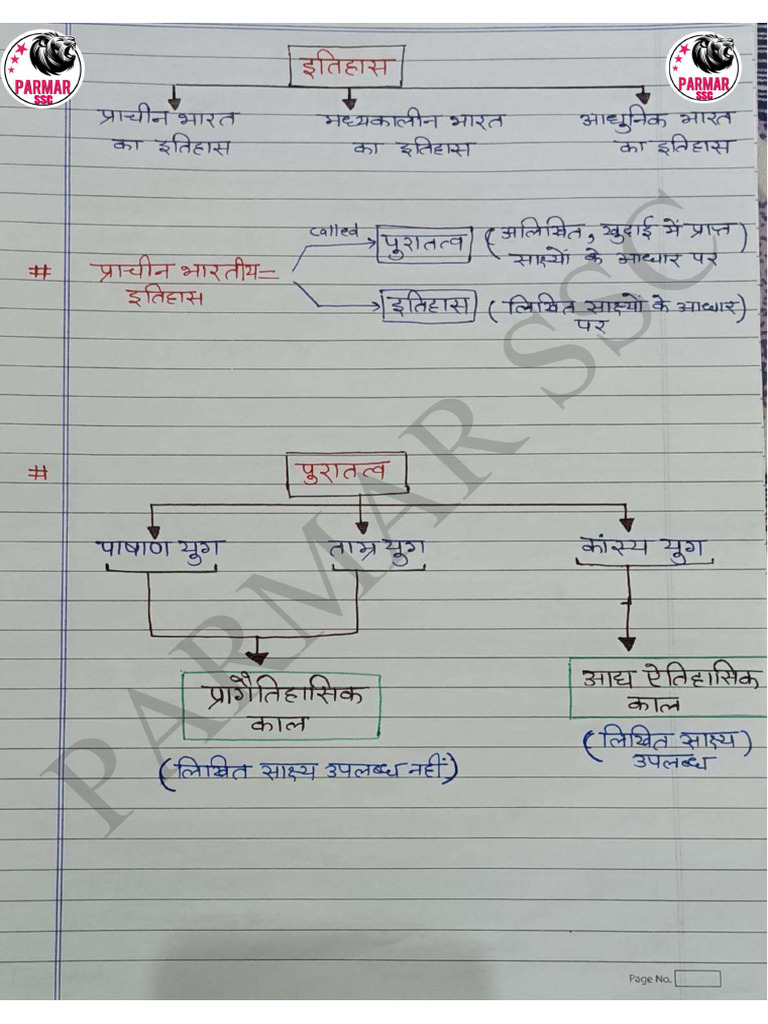 PARMAR SSC
PARMAR SSC
इतिहास
प्राचीन भारत का इतिहास
मध्यकालीन भारत का इतिहास
आधुनिक भारत का इतिहास
# प्राचीन भारतीय = इतिहास
called
पुरातत्व (अलिखित, खुदाई में प्राप्त साक्ष्यों के आधार पर)
इतिहास (लिखित साक्ष्यों के आधार पर)
# पुरातत्व
पाषाण युग
ताम्र युग
कांस्य युग
प्रागैतिहासिक काल
(लिखित साक्ष्य उपलब्ध नहीं)
आद्य ऐतिहासिक काल
(लिखित साक्ष्य उपलब्ध)
PARMAR SSC
Page No.